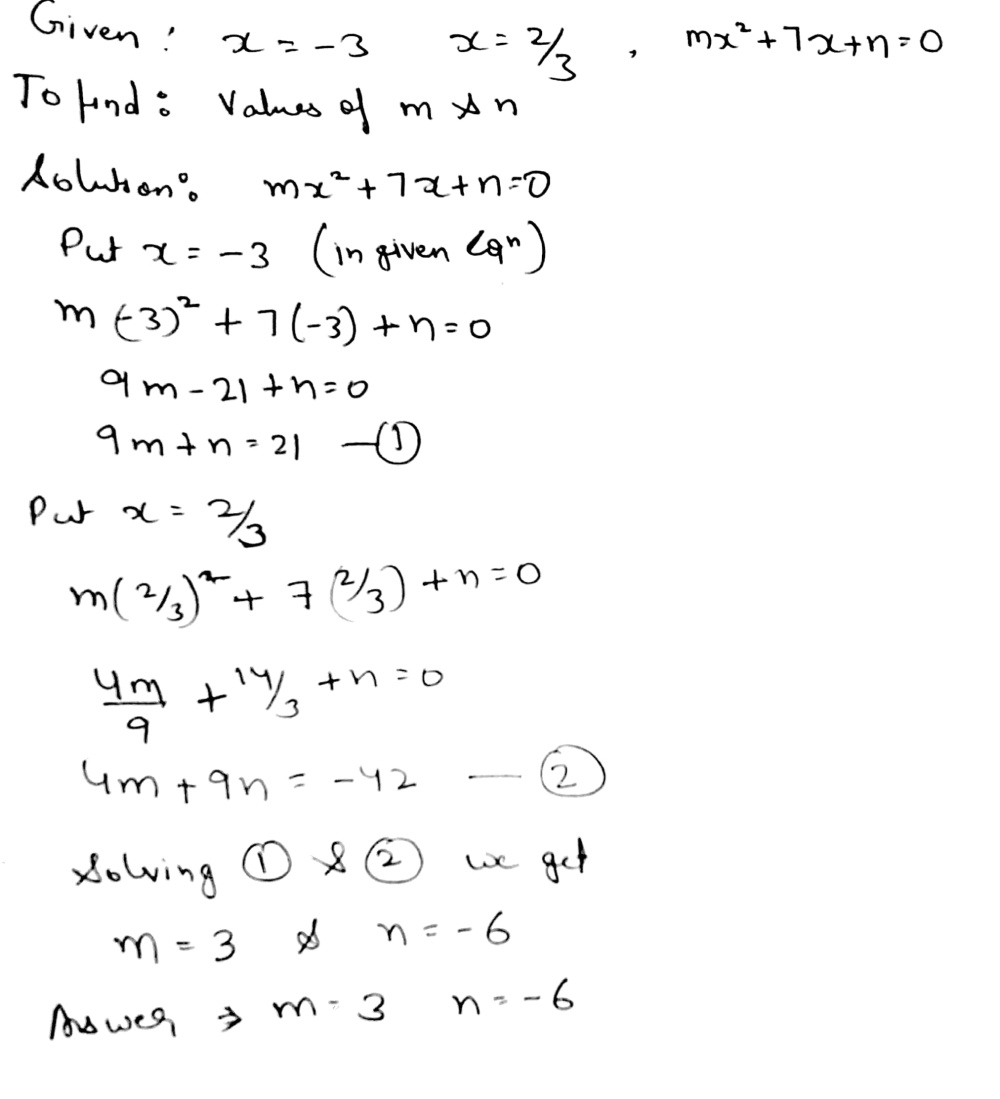 Given : x = -3 x = 2/3 , mx² + 7x + n = 0
To find : Values of m & n
Solution : mx² + 7x + n = 0
Put x = -3 (in given eqⁿ)
m (-3)² + 7 (-3) + n = 0
9m - 21 + n = 0
9m + n = 21 — ①
Put x = 2/3
m(2/3)² + 7 (2/3) + n = 0
4m/9 + 14/3 + n = 0
4m + 9n = -42 — ②
Solving ① & ② we get
m = 3 & n = -6
Answer → m = 3 n = -6